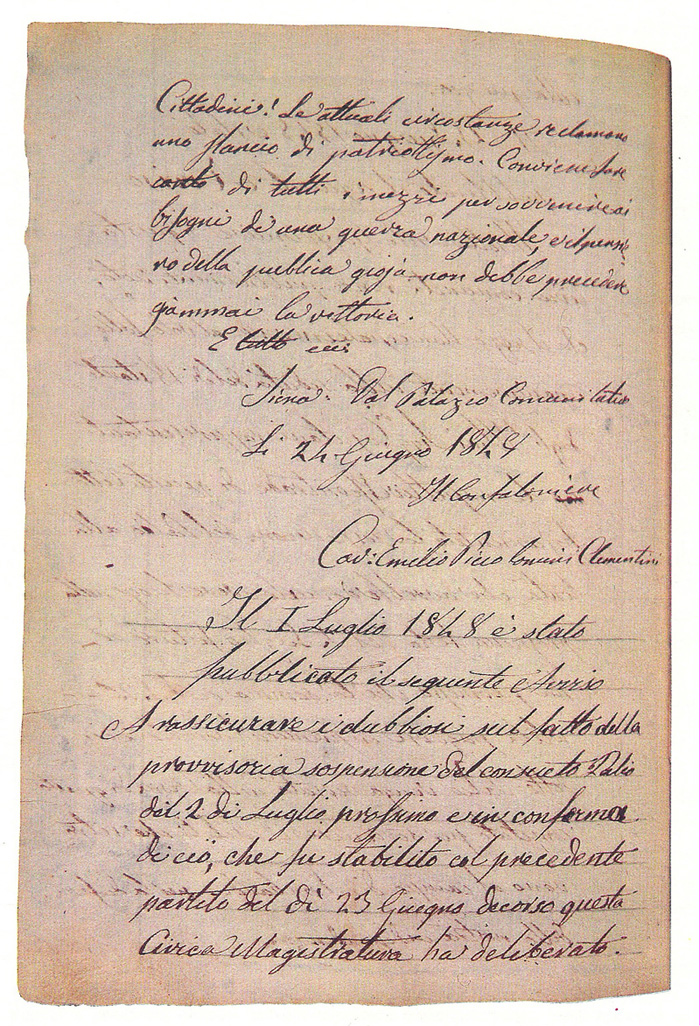 Cittadini! Le attuali circostanze reclamano
uno slancio di patriottismo. Conviene fare
conto di tutti i mezzi per sovvenire ai
bisogni di una guerra nazionale, e il pensie
ro della publica gioja non debbe precedere
giammai la vittoria.
E tutto
Siena. Dal Palazzo Comunitativo
Li 24 Giugno 1848
Il Confaloniere
Cav: Emilio Piccolomini Clementini
Il I Luglio 1848 è stato
pubblicato il seguente Avviso
A rassicurare i dubbiosi sul fatto della
provvisoria sospensione del consueto Palio
del 2 di Luglio prossimo e in conferma
di ciò, che fu stabilito col precedente
partito del dì 23 Giugno decorso questa
Civica Magistratura ha deliberato.